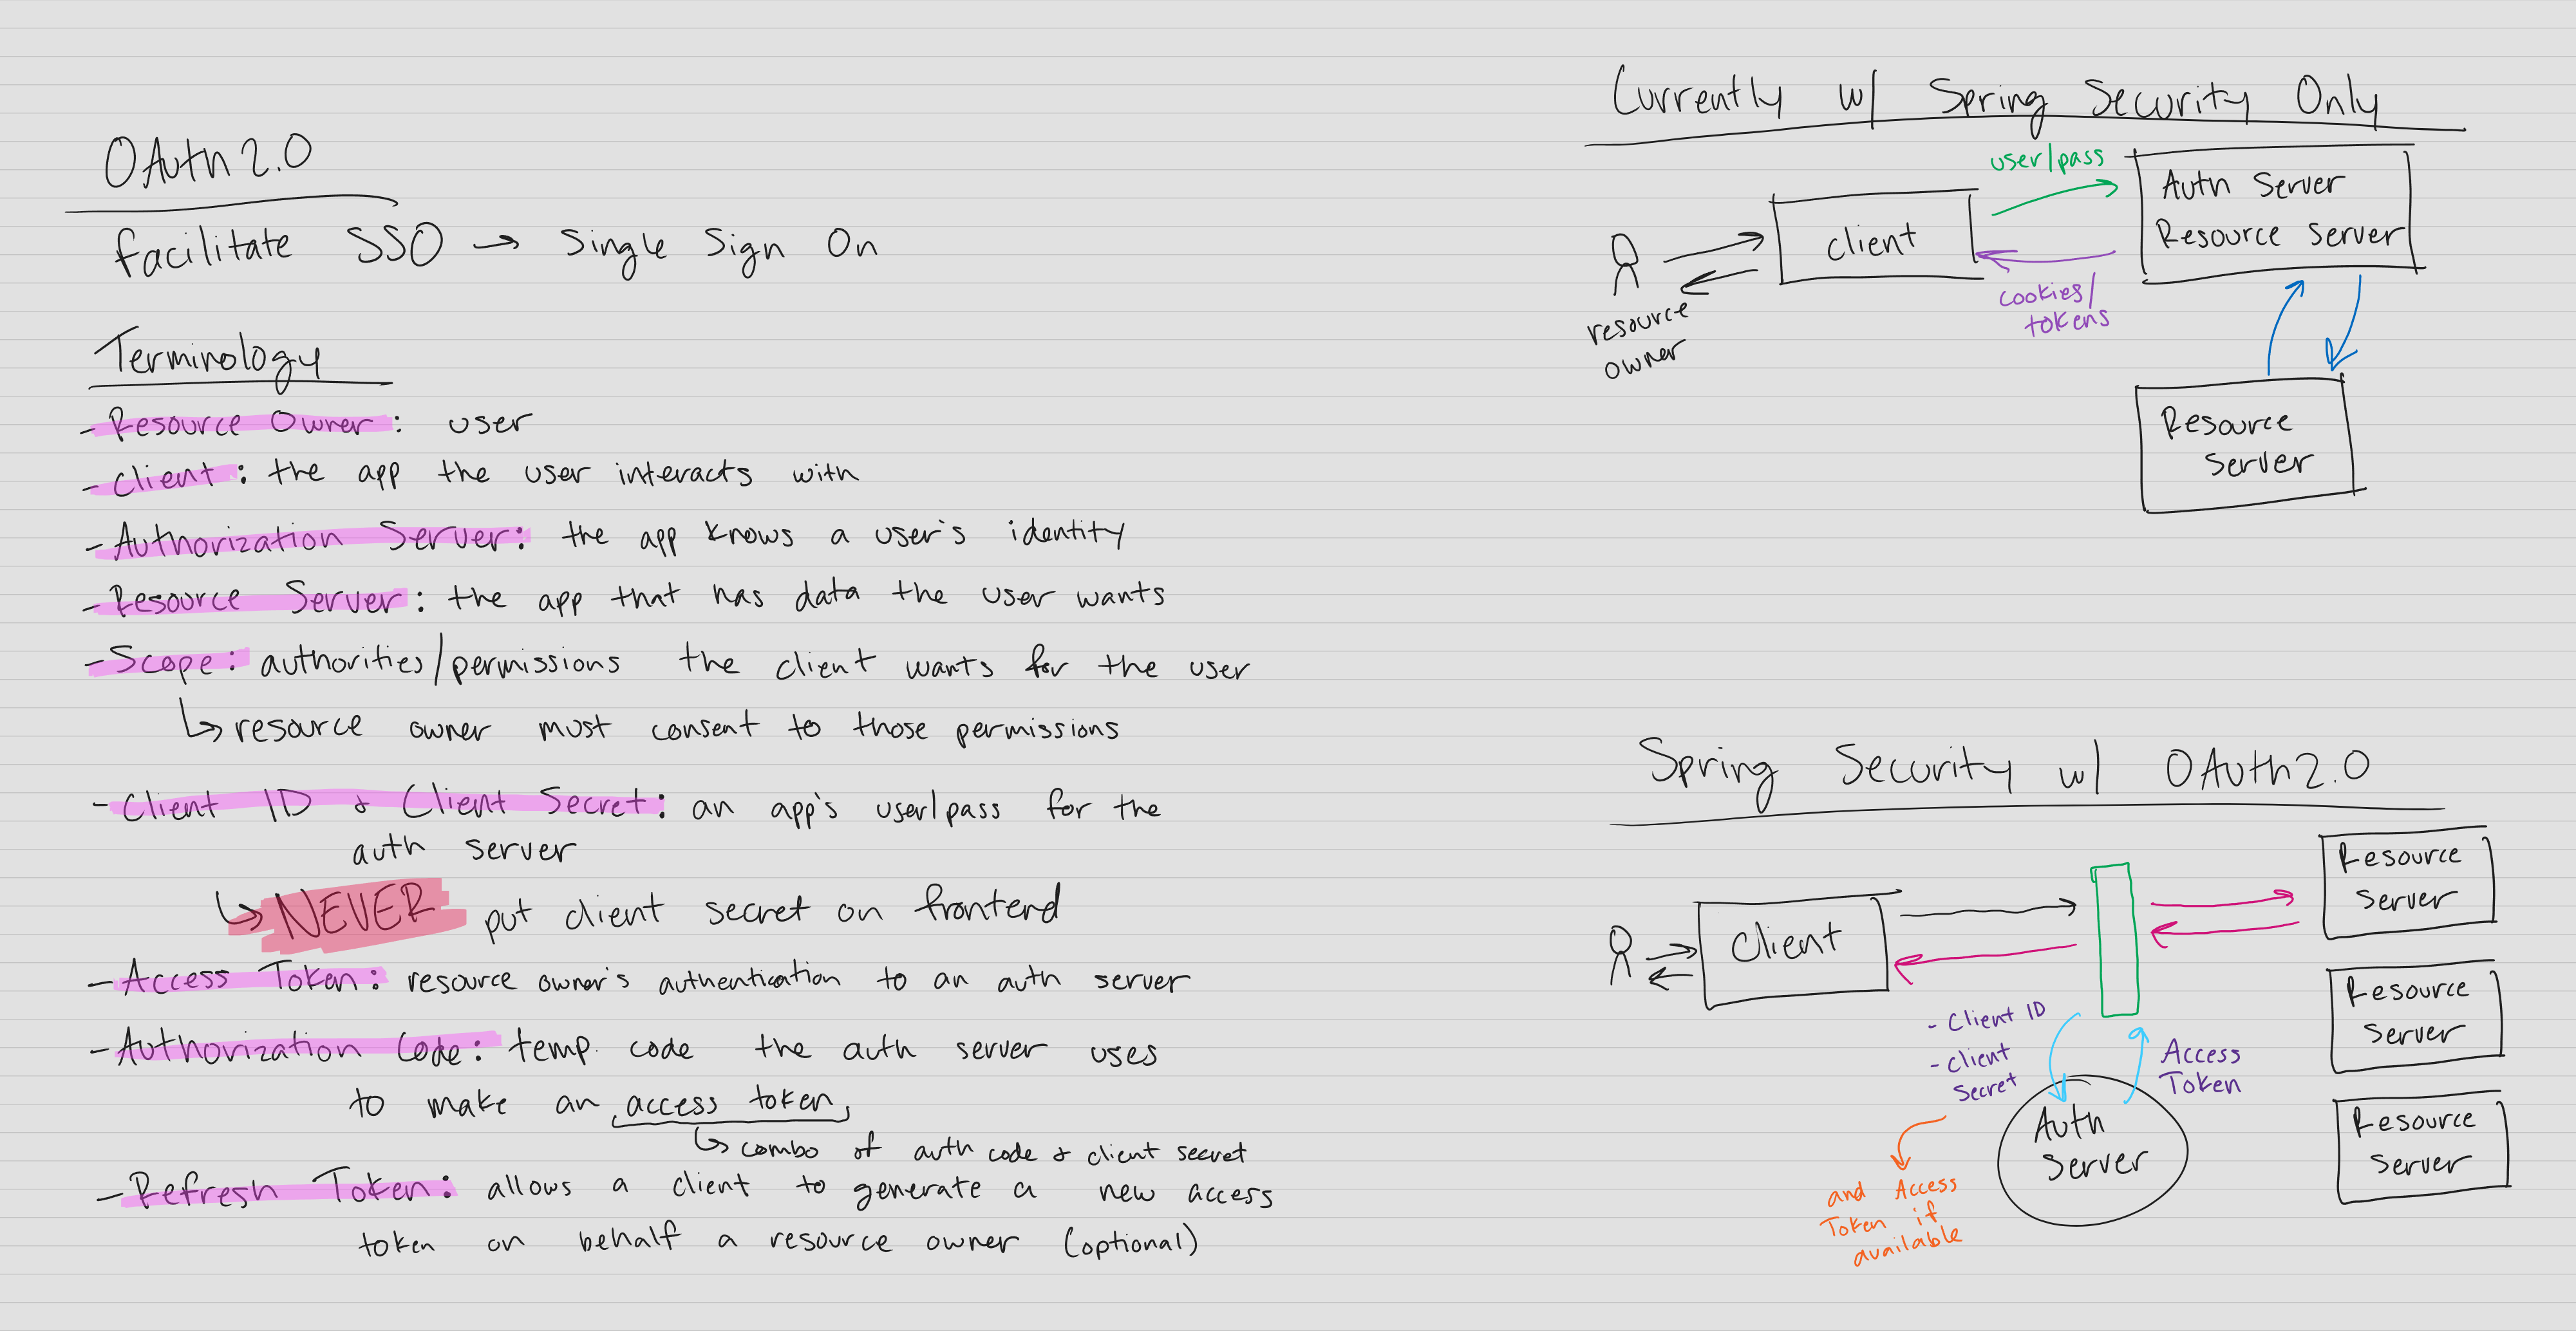 OAuth 2.0
facilitate SSO → Single Sign On
Terminology
- Resource Owner: user
- Client: the app the user interacts with
- Authorization Server: the app knows a user's identity
- Resource Server: the app that has data the user wants
- Scope: authorities/permissions the client wants for the user
↳ resource owner must consent to those permissions
- Client ID & Client Secret: an app's user/pass for the
auth server
↳ NEVER put client secret on frontend
- Access Token: resource owner's authentication to an auth server
- Authorization Code: temp. code the auth server uses
to make an access token
↳ combo of auth code & client secret
- Refresh Token: allows a client to generate a new access
token on behalf a resource owner (optional)
Currently w/ Spring Security Only
user/pass
Auth Server
Resource Server
client
cookies/
tokens
resource
owner
Resource
Server
Spring Security w/ OAuth2.0
Resource
Server
Client
Resource
Server
- Client ID
- Client
Secret
Access
Token
Auth
Server
Resource
Server
and Access
Token if
available